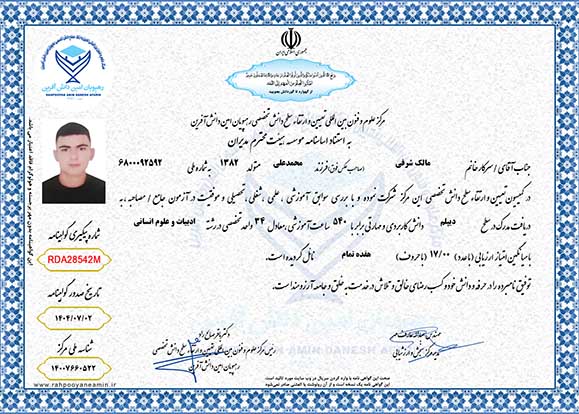 رهپویان امین دانش آفرین
RAHPOOYAN AMIN DANESH AFARIN
جمهوری اسلامی ایران
ز گهواره تا گور دانش بجویید
مرکز علوم و فنون بین المللی تعیین و ارتقاء سطح دانش تخصصی رهپویان امین دانش آفرین
به استناد اساسنامه موسسه و هیئت محترم مدیران
جناب آقای / سرکار خانم مالک شرفی (صاحب عکس فوق) فرزند محمدعلی متولد ۱۳۸۲ به شماره ملی ۶۸۰۰۰۹۲۵۹۲
در کمیسیون تعیین و ارتقاء سطح دانش تخصصی این مرکز شرکت نموده و با بررسی سوابق آموزشی ، علمی ، شغلی ، تحصیلی و موفقیت در آزمون جامع / مصاحبه ، به
دریافت مدرک در سطح دیپلم دانش کاربردی و مهارتی برابر با ۵۴۰ ساعت آموزشی ، معادل ۳۴ واحد تخصصی در رشته ادبیات و علوم انسانی
با میانگین امتیاز ارزیابی (با عدد) ۱۷/۰۰ (با حروف) هفده تمام نائل گردیده است.
توفیق نامبرده را در حرفه و دانش خود و کسب رضای خالق و تلاش در خدمت به خلق و جامعه آرزومند است.
شماره پیگیری گواهینامه
RDA28542M
تاریخ صدور گواهینامه
۱۴۰۴/۰۷/۰۲
شناسه ملی مرکز
۱۴۰۰۷۶۶۰۵۲۲
www.rahpooyaneamin.ir
مدیر مرکز سنجش و ارزیابی
رئیس مرکز علوم و فنون بین المللی تعیین و ارتقاء سطح دانش تخصصی
رهپویان امین دانش آفرین
AMIN DANESH AFARIN
صحت این گواهی نامه با وارد کردن سریال در وب سایت مورد تائید است.